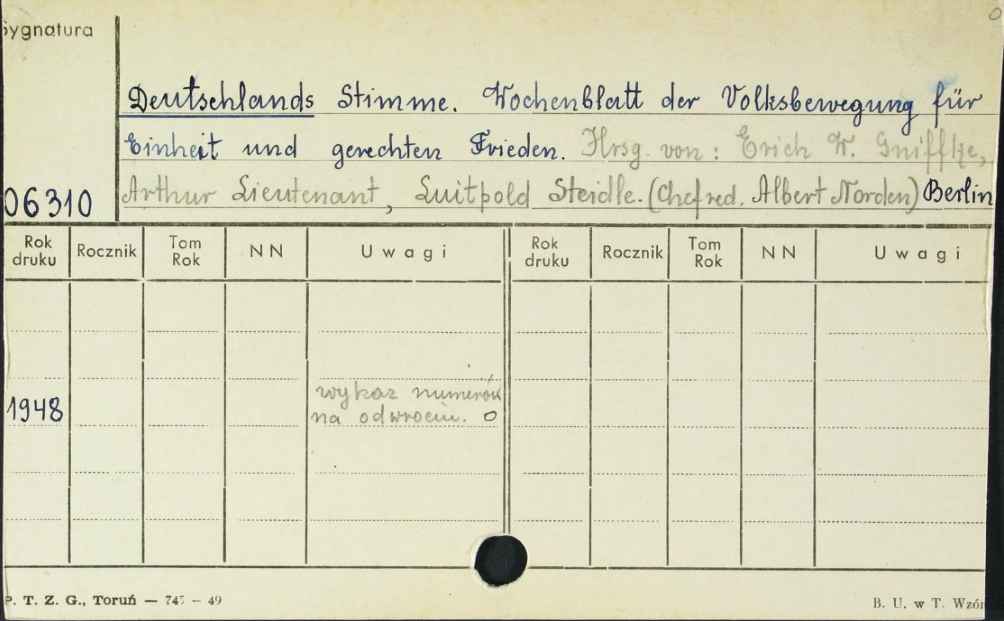 Sygnatura
Deutschlands Stimme. Wochenblatt der Volksbewegung für
Einheit und gerechten Frieden. Hrsg. von: Erich W. Gniffke,
06310 Arthur Lieutenant, Luitpold Steidle. (Chefred. Albert Norden) Berlin
Rok druku Rocznik Tom Rok NN Uwagi Rok druku Rocznik Tom Rok NN Uwagi
wykaz numerów
1948 na odwrociu. O
P. T. Z. G., Toruń — 747 — 49 B. U. w T. Wzór